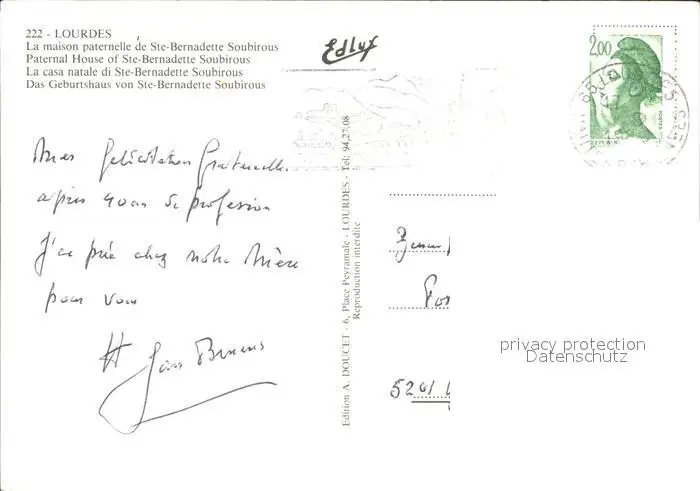 222 - LOURDES
La maison paternelle de Ste-Bernadette Soubirous
Paternal House of Ste-Bernadette Soubirous
La casa natale di Ste-Bernadette Soubirous
Das Geburtshaus von Ste-Bernadette Soubirous
Edlux
2,00
Mes Félicitations Fraternelles
après 40 ans de profession
J'ai prié chez notre Mère
pour vous
Jan
Edition A. DOUCET - 6, Place Peyramale - LOURDES - Tél. 94.27.08
Reproduction interdite
5201
privacy protection
Datenschutz